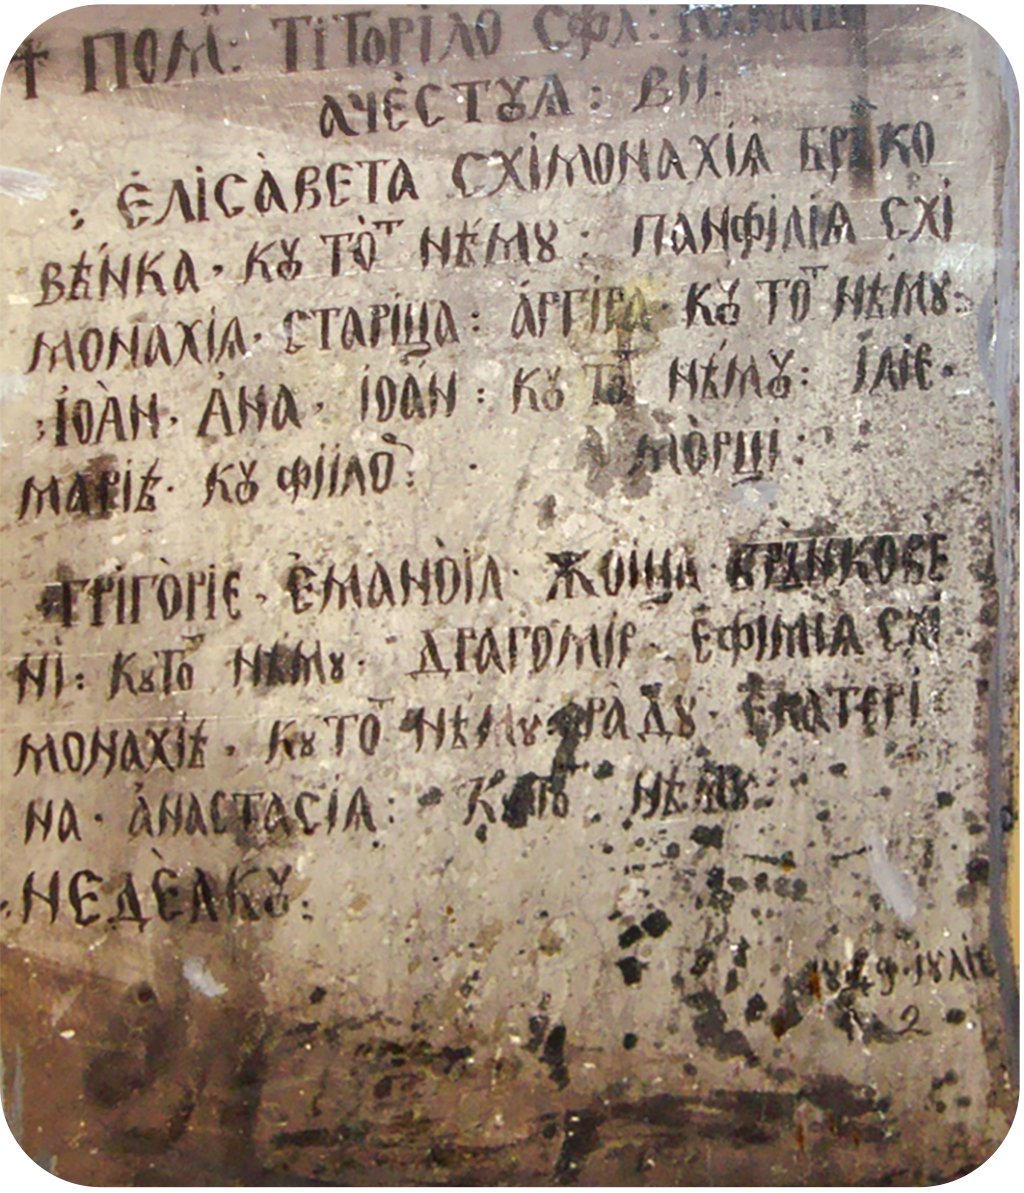 † ПОМ: ТІТОРІЛО СФЛ:
АЧЕ́СТꙊЛ : ВІІ.
: Е҆ЛІСА̀ВЕТА СХІМОНАХІѦ БРѪКО
ВѢ́НКА · КꙊ ТО̀Т НѢ́МꙊ : ПАНФІЛІѦ СХІ
МОНАХІѦ · СТАРІЦА : А҆РГІРА · КꙊ ТОТ НѢ́МꙊ :
: І҆ОА̀Н · А҆НА · ІОА́Н : КꙊ ТОТ НѢ́МꙊ : ІЛІЕ ·
МАРІѢ · КꙊ ФІІЛО : · МО̀РЦІ :
ГРІГО̀РІЕ · Е҆МАНО̀ІЛ · ЖОІЦА БРѪНКОВЕ
НІ : КꙊ ТОТ НѢ́МꙊ · ДРАГОМІР · ЕФІМІѦ СХІ
МОНАХІѢ · КꙊ ТОТ НѢ́МꙊ · РА̀ДꙊ · ЕКАТЕРІ
НА · А҆НАСТАСІѦ : КꙊ ТОТ НѢ́МꙊ
· НЕДЀЛКꙊ :
1849 · ІꙊЛІЕ
2